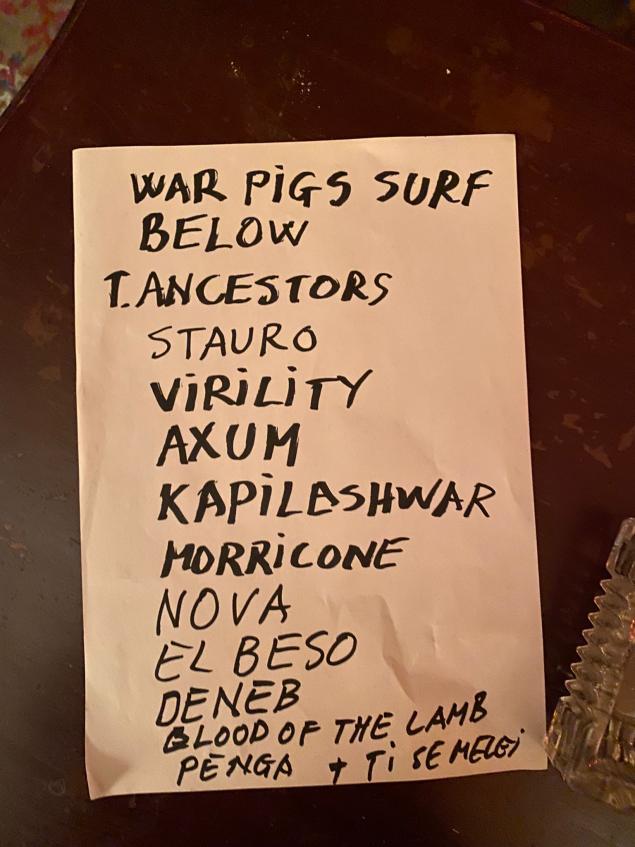 WAR PiGS SURF
BELOW
T. ANCESTORS
STAURO
ViRiLiTY
AXUM
KAPiLASHWAR
MORRiCONE
NOVA
EL BESO
DENEB
BLOOD OF THE LAMB
PENGA + Ti SE MELGi